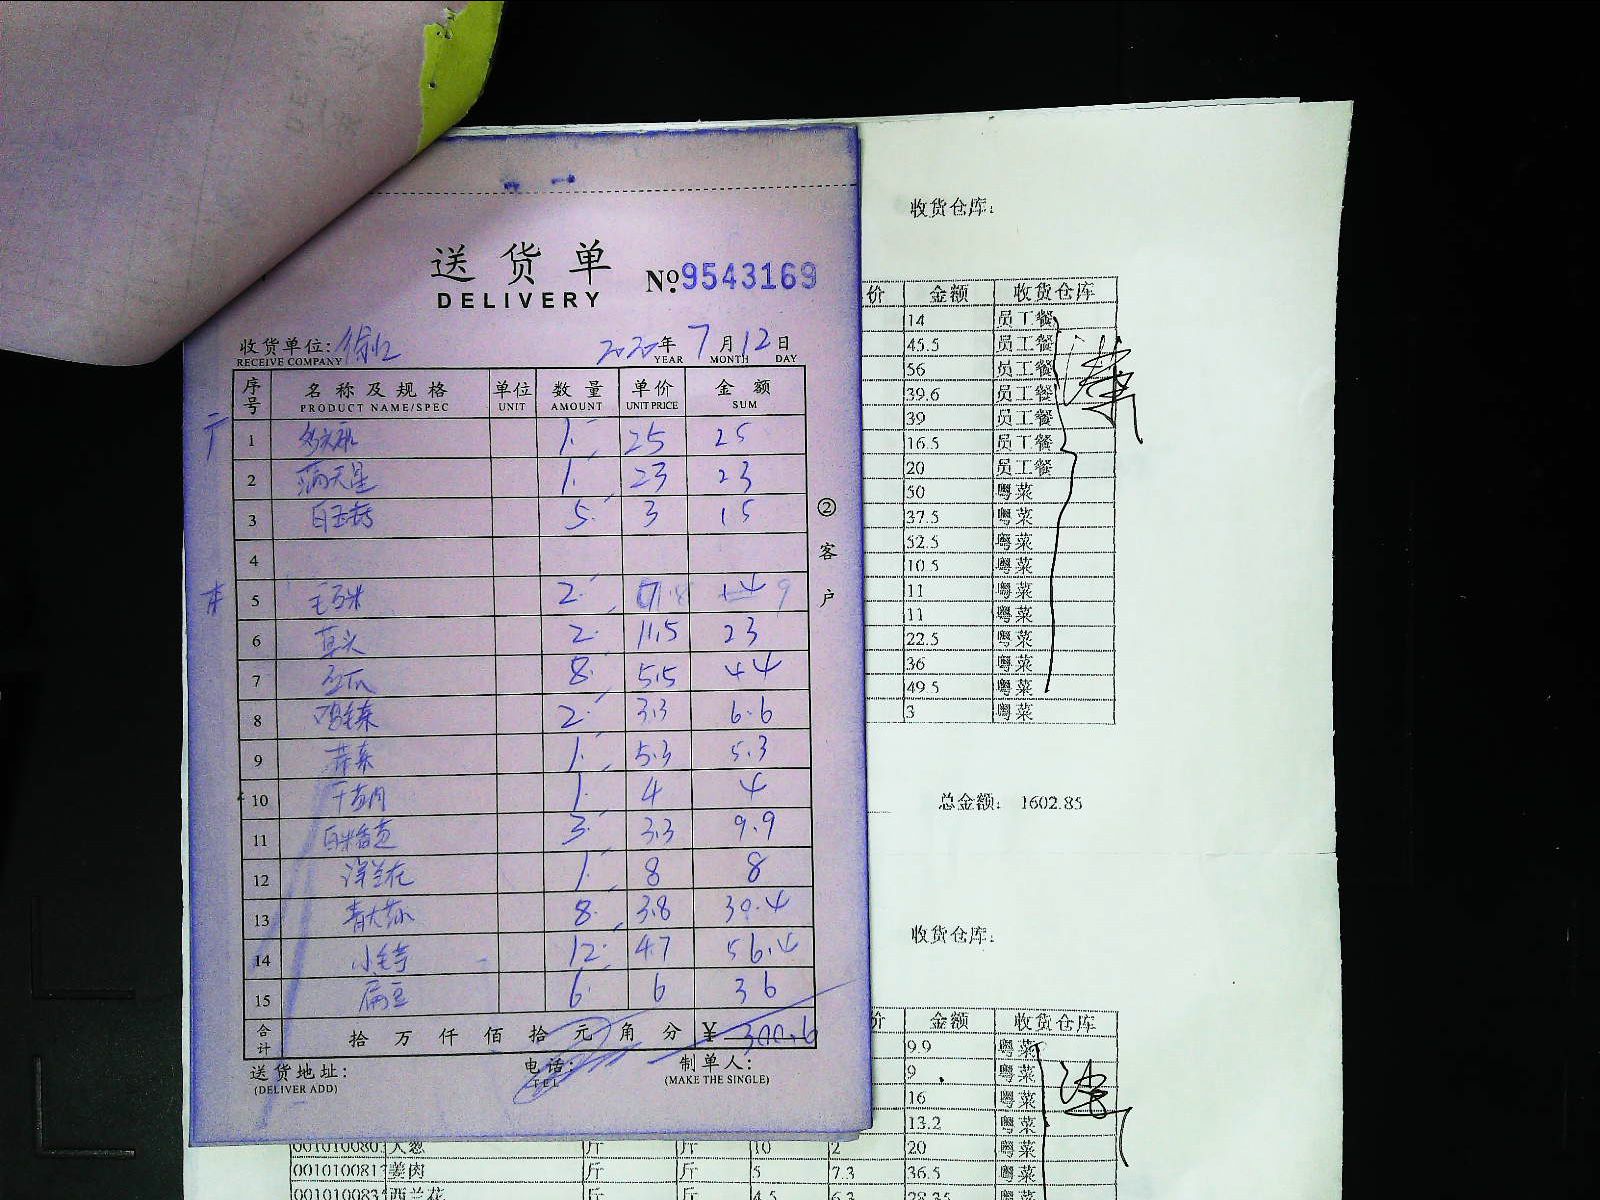 送货单
DELIVERY
№ 9543169
收货单位:
RECEIVE COMPANY
2020年 7月 12日
YEAR MONTH DAY
序号 名称及规格 单位 数量 单价 金额
PRODUCT NAME/SPEC UNIT AMOUNT UNIT PRICE SUM
1 1 25 25
2 满天星 1 23 23
3 白玉菇 5 3 15
4
5 毛豆米 2 9
6 草头 2 11.5 23
7 8 5.5 44
8 鸡毛菜 2 3.3 6.6
9 1 5.3 5.3
10 1 4 4
11 白米苋 3 3.3 9.9
12 西兰花 1 8 8
13 8 3.8 30.4
14 小毛芋 12 4.7 56.4
15 扁豆 6 6 36
合计 拾 万 仟 佰 拾 元 角 分 ¥ 300.6
送货地址: 电话: 制单人:
(DELIVER ADD) TEL (MAKE THE SINGLE)
②客户
收货仓库:
价 金额 收货仓库
14 员工餐
45.5 员工餐
56 员工餐
39.6 员工餐
39 员工餐
16.5 员工餐
20 员工餐
50 粤菜
37.5 粤菜
52.5 粤菜
10.5 粤菜
11 粤菜
11 粤菜
22.5 粤菜
36 粤菜
49.5 粤菜
3 粤菜
总金额: 1602.85
收货仓库:
价 金额 收货仓库
9.9 粤菜
9 粤菜
16 粤菜
13.2 粤菜
大葱 斤 斤 10 2 20 粤菜
姜肉 斤 斤 5 7.3 36.5 粤菜
西兰花 斤 斤 4.5 6.3 28.35 粤菜